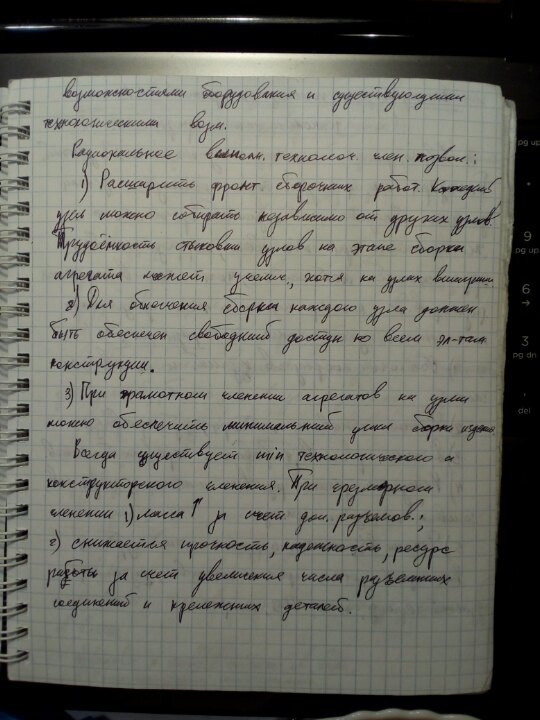 возможностями борудования и существующими
технологическими возм.
Рациональное выполн. технолоч. член. позвол.:
1) Расширить фронт. сборочных работ. Каждый
узел можно собирать независимо от других узлов.
Трудоёмкость стыковки узлов на этапе сборки
агрегата может увелич., хотя на узлах
2) Для облегчения сборки каждого узла должен
быть обеспечен свободный доступ ко всем эл-там
конструкции.
3) При грамотном членении агрегатов на узлы
можно обеспечить минимальный цикл сборки изделия
Всегда существует min технологического и
конструкторского членения. При чрезмерном
членении 1) масса ↑ за счет доп. разъемов.;
2) снижается прочность, надежность, ресурс
работы за счет увеличения числа разъемных
соединений и крепежных деталей.
9
pg up
6
→
3
pg dn
del